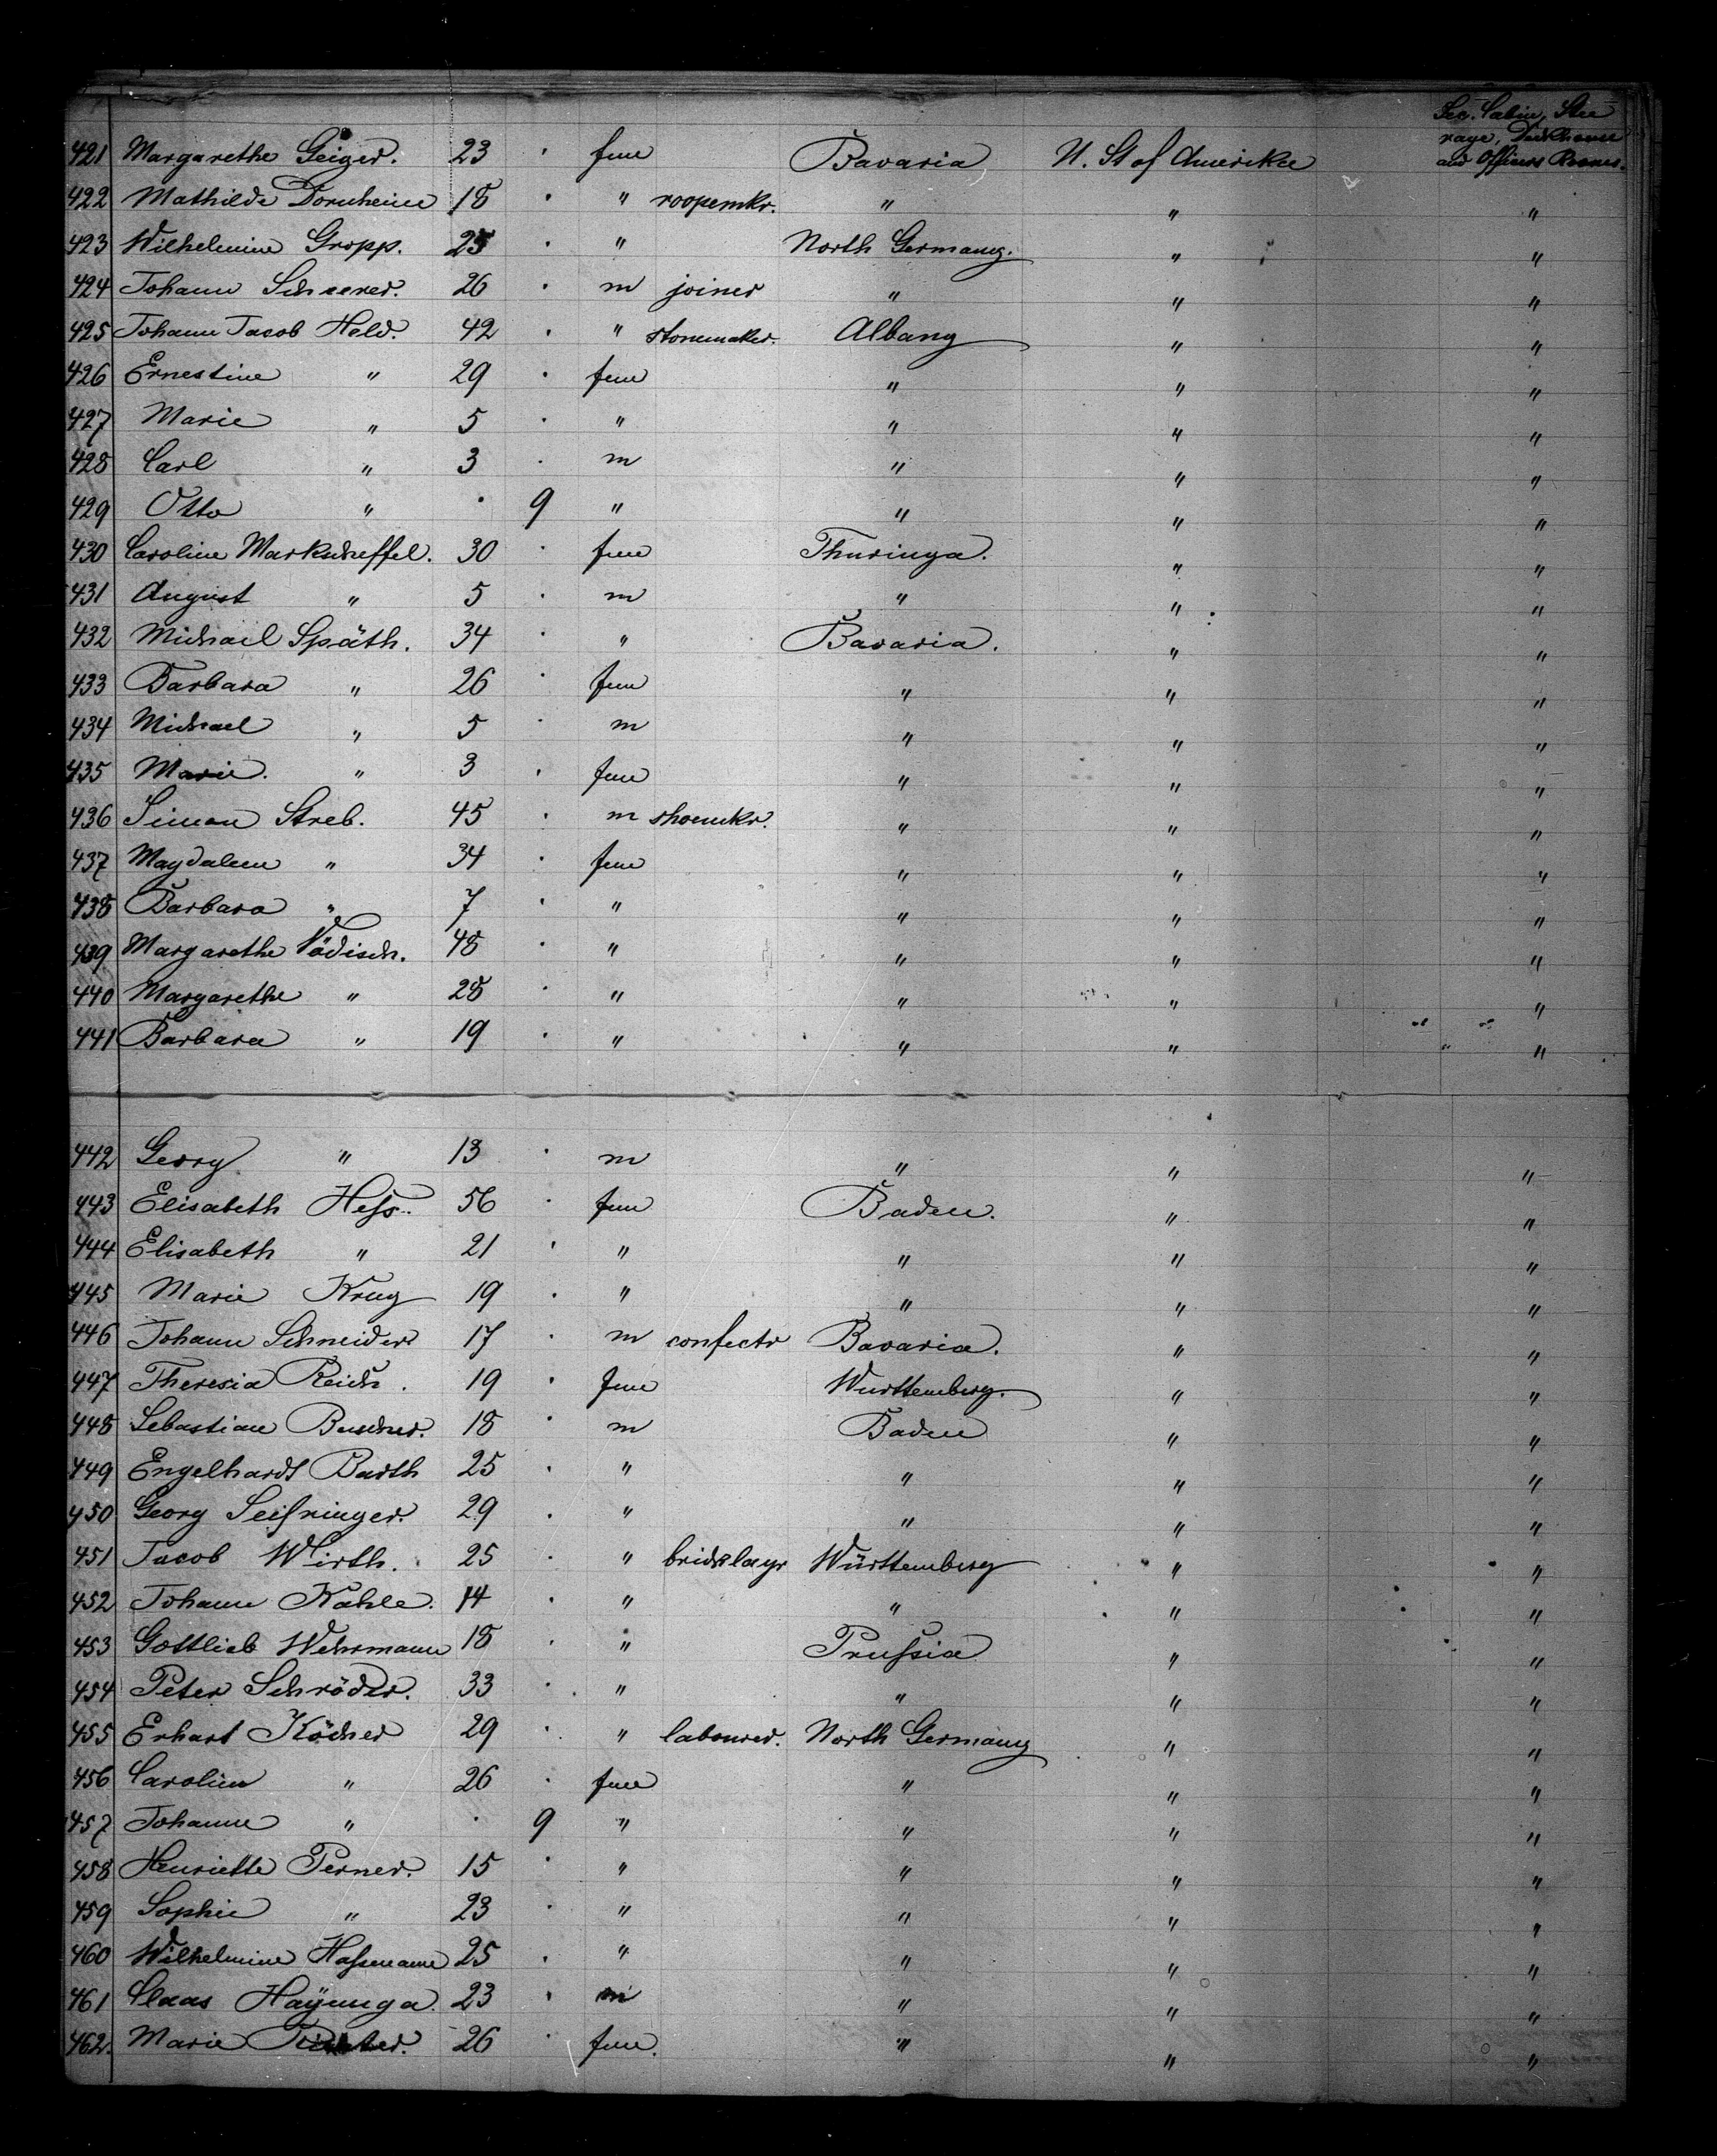 Sec. Cabin, Stee
rage, Deckhouse
and Officers Rooms.
421 Margarethe Geiger. 23 · fem Bavaria U. St of Amerika
422 Mathilde Dornheim 18 · " roopemkr. " " "
423 Wilhelmine Gropp. 25 · " North Germany. " "
424 Johann Scheerer. 26 · m joiner " " "
425 Johann Jacob Held. 42 · " stonemaker. Albany " "
426 Ernestine " 29 · fem " " "
427 Marie " 5 · " " " "
428 Carl " 3 · m " " "
429 Otto " · 9 " " " "
430 Caroline Markscheffel. 30 · fem Thuringa. " "
431 August " 5 · m " " "
432 Michael Späth. 34 · " Bavaria. " "
433 Barbara " 26 · fem " " "
434 Michael " 5 · m " " "
435 Marie. " 3 · fem " " "
436 Simon Streb. 45 · m shoemkr. " " "
437 Magdalena " 34 · fem " " "
438 Barbara " 7 · " " " "
439 Margarethe Vödisch. 48 · " " " "
440 Margarethe " 28 · " " " "
441 Barbara " 19 · " " " "
442 Georg " 13 · m " " "
443 Elisabeth Heſs. 56 · fem Baden. " "
444 Elisabeth " 21 · " " " "
445 Marie Krug 19 · " " " "
446 Johann Schneider 17 · m confectr Bavaria. " "
447 Theresia Reich. 19 · fem Wurttemberg. " "
448 Sebastian Buchner. 18 · m Baden " "
449 Engelhardt Barth 25 · " " " "
450 Georg Seiſringer. 29 · " " " "
451 Jacob Wirth. 25 · " bricklayr Württemberg " "
452 Johann Kahle. 14 · " " " "
453 Gottlieb Wehrmann 18 · " Pruſsia " "
454 Peter Schröder. 33 · " " " "
455 Erhart Köcher 29 · " labourer. North Germany " "
456 Carolin " 26 · fem " " "
457 Johanne " · 9 " " " "
458 Henriette Perner. 15 · " " " "
459 Sophie " 23 · " " " "
460 Wilhelmine Haſsmann 25 · " " " "
461 Claas Hayunga. 23 · m " " "
462. Marie 26 · fem. " " "